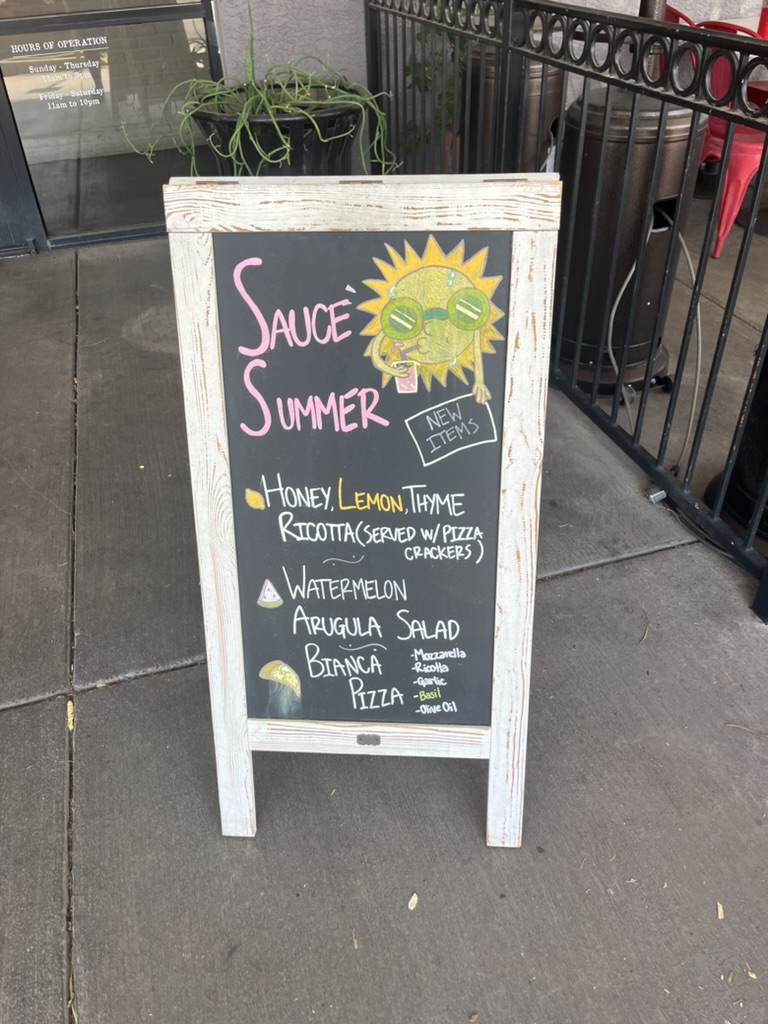 HOURS OF OPERATION
Sunday - Thursday
11am to 9pm
Friday - Saturday
11am to 10pm
SAUCE`
SUMMER
NEW
ITEMS
HONEY, LEMON, THYME
RICOTTA (SERVED W/ PIZZA
CRACKERS)
WATERMELON
ARUGULA SALAD
BIANCA
PIZZA
-Mozzarella
-Ricotta
-Garlic
-Basil
-Olive Oil